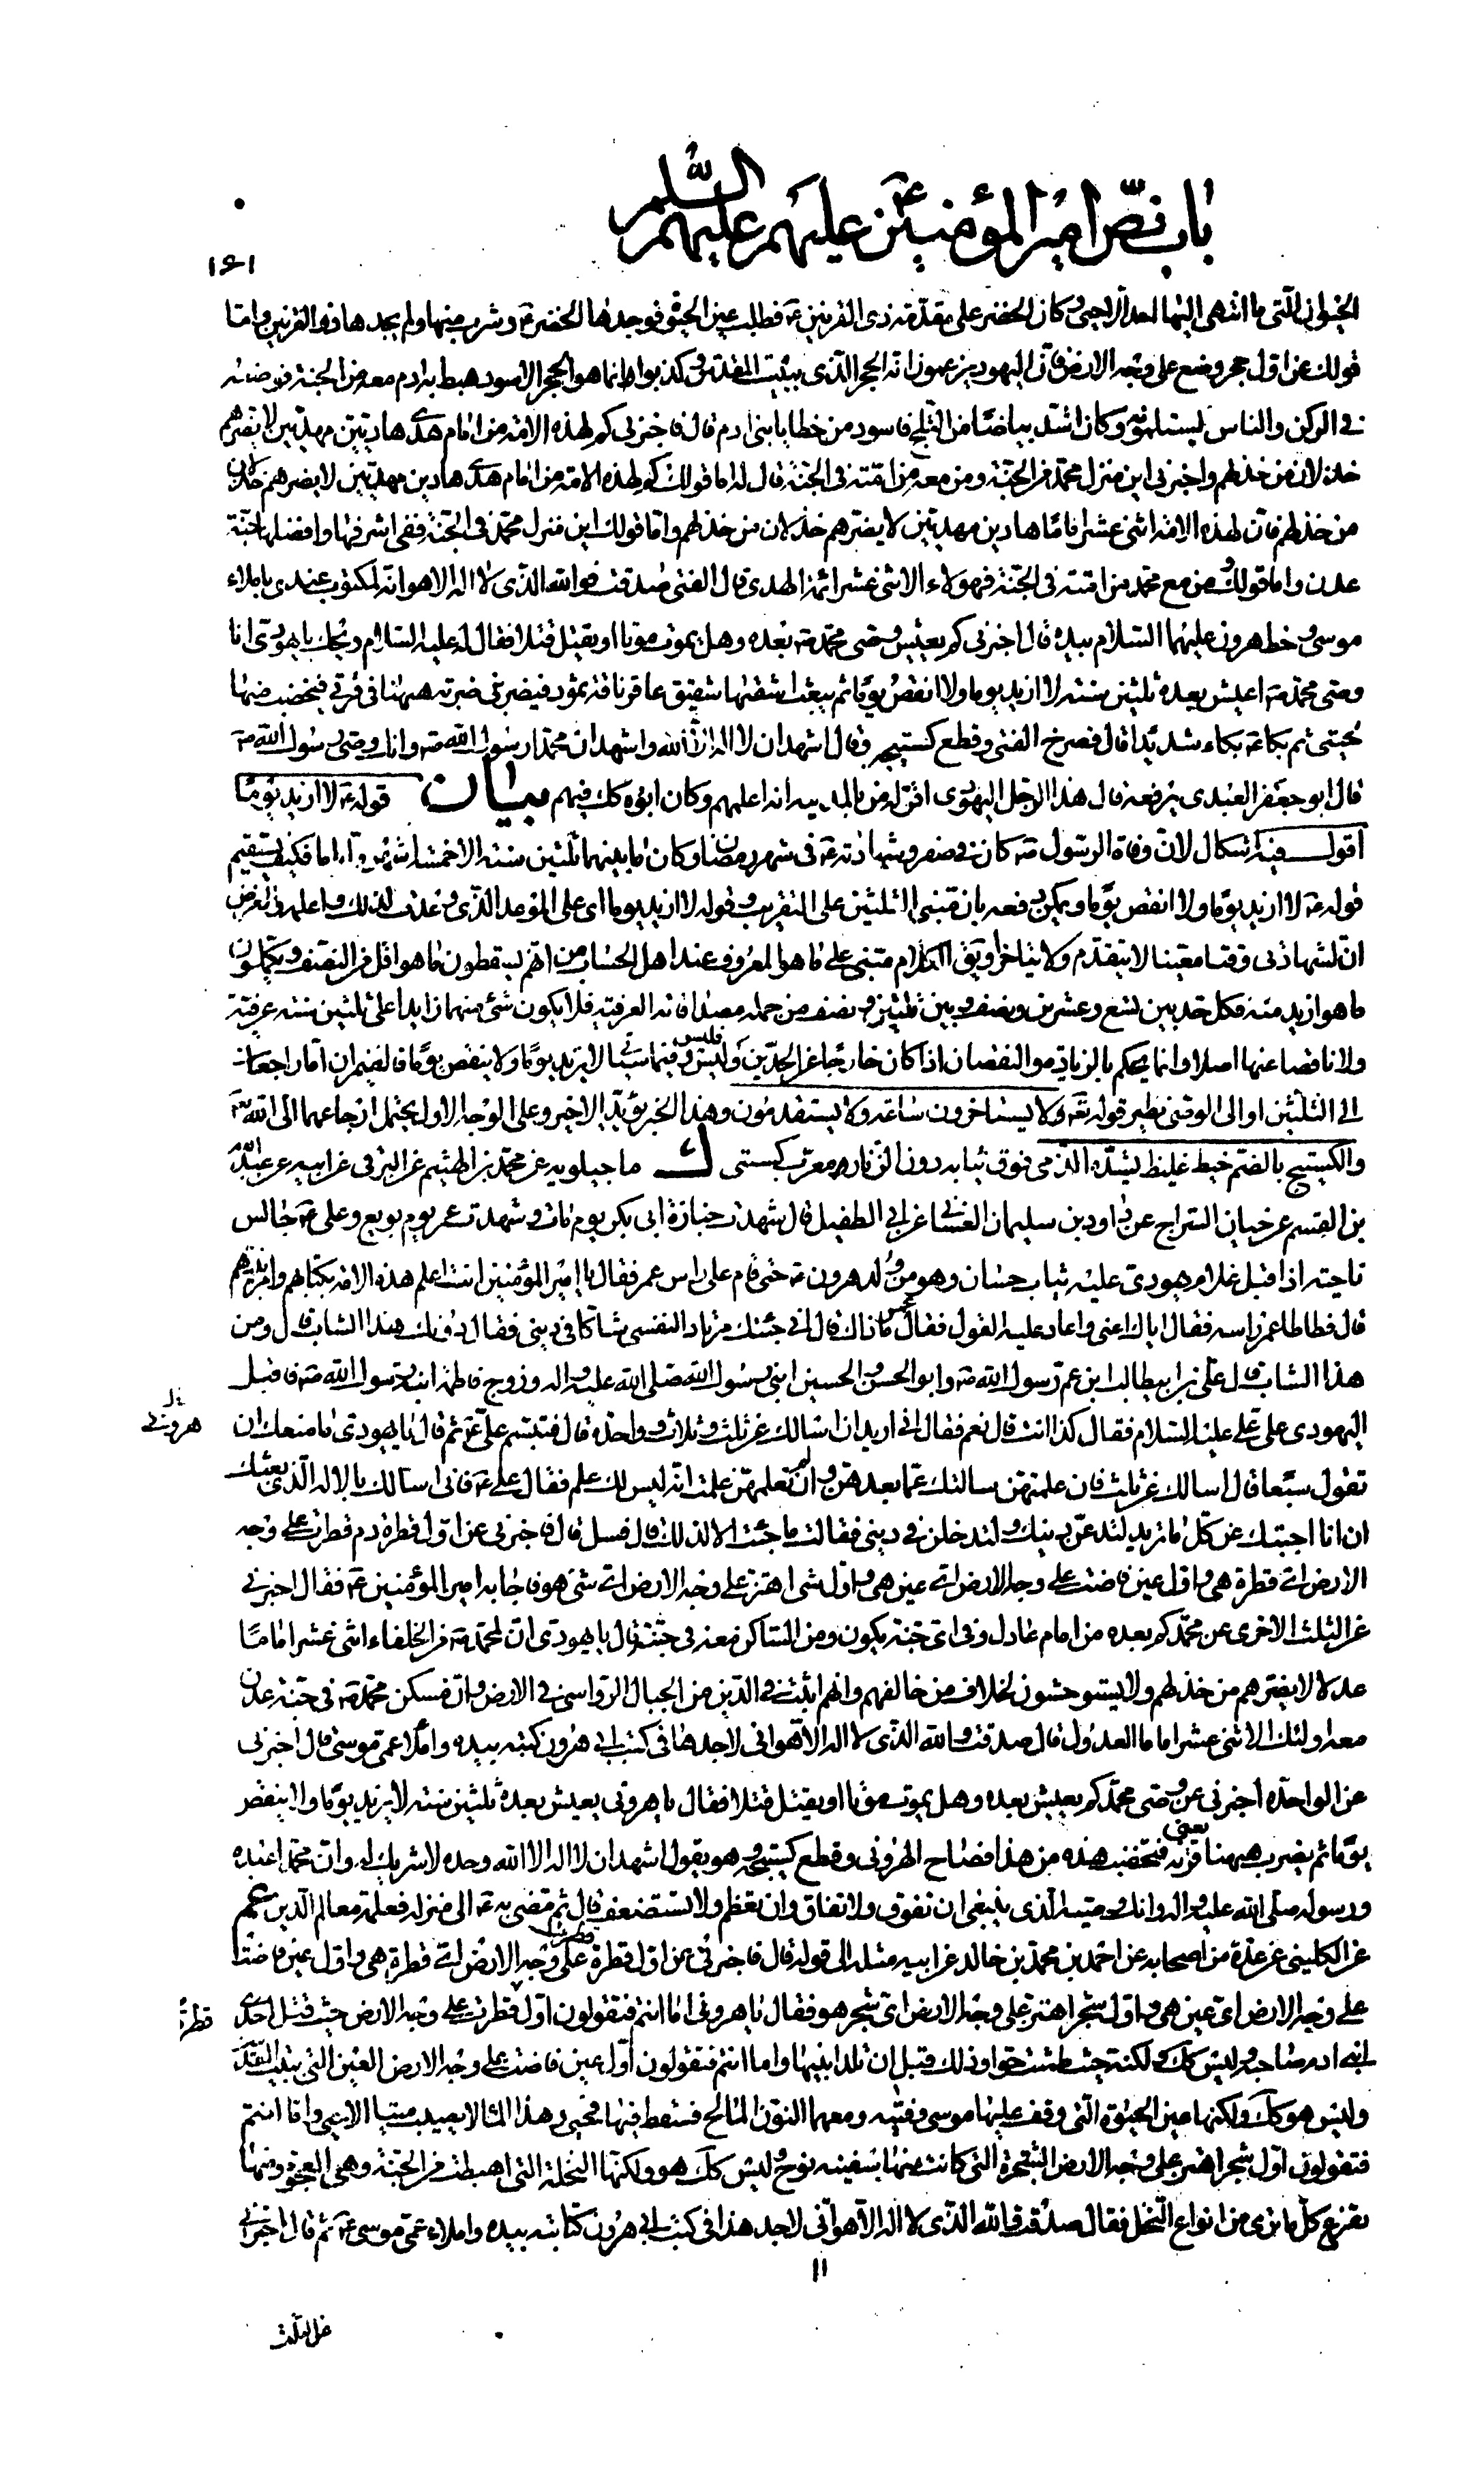 باب نصّ امير المؤمنين عليهم عليهم السّلم
١٦١
الحيوان الّتى ما انتهى اليها احد الا حيى وكان الخضر على مقدّمة ذى القرنين عه فطلب عين الحيوة فوجدها الخضر عه وشرب منها ولم يجدها ذو القرنين وامّا
قولك عن اوّل حجر وضع على وجه الارض فانّ اليهود يزعمون انّه الحجر الّذى ببيت المقدس وكذبوا وانما هو الحجر الاسود هبط به ادم معه من الجنة فوضعه
فى الركن والناس يستلمونه وكان اشد بياضًا من الثلج فاسود من خطايا بنى ادم قال فاخبرنى كم لهذه الامّة من امام هدى هاديين مهديّين لا يضرهم
خذلان من خذلهم واخبرنى اين منزل محمّد من الجنّة ومن معه من امّته فى الجنّة قال له امّا قولك كم لهذه الامّة من امام هدى هادين مهديّين لا يضرهم خذلان
من خذلهم فانّ لهذه الامّة اثنى عشر امامًا هادين مهديّين لا يضرّهم خذلان من خذلهم وامّا قولك اين منزل محمّد فى الجنّة ففى اشرفها وافضلها جنّة
عدن واما قولك من مع محمّد من امّته فى الجنّة فهولاء الاثنى عشر ائمّة الهدى قال الفتى صدقت فوالله الّذى لا اله الا هو انّه لمكتوب عندى باملاء
موسى وخط هرون عليهما السّلام بيده قال اخبرنى كم يعيش وصى محمّد صه بعده وهل يموت موتا او يقتل قتلا فقال له عليه السّلام ويحك يا يهودى انا
وصى محمّد صه اعيش بعده ثلثين سنة لا ازيد يوما ولا انقص يومًا ثم يبعث اشقيها شقيق عاقر ناقة ثمود فيضربنى ضربة ههنا فى قرنى فيخضب منها
لحيتى ثم بكا عه بكاء شديدًا قال فصرخ الفتى وقطع كستيجه وقال اشهد ان لا اله الا الله واشهد ان محمّدا رسول الله صه وانك وصى رسول الله صه
قال ابو جعفر العبدى يرفعه قال هذا الرجل اليهودى اقرّ له من بالمدينة انه اعلمهم وكان ابوه كك فيهم بيان قوله عه لا ازيد يومًا
اقول فيه اشكال لانّ وفاة الرسول صه كان فى صفر وشهادته عه فى شهر رمضان وكان ما بينهما ثلثين سنة الا خمسة اشهر وايّاما فكيف يستقيم
قوله عه لا ازيد يومًا ولا انقص يومًا ويمكن دفعه بان مبنى الثلثين على التقريب وقوله لا ازيد يوما اى على الموعد الّذى وعدت لذلك واعلمه والغرض
انّ لشهادتى وقتا معيّنا لا يتقدّم ولا يتاخر او يق الكلام مبتنى على ما هو المعروف عند اهل الحساب من انّهم يسقطون ما هو اقل من النصف ويكملون
ما هو ازيد منه فكل حد بين تسع وعشرين ونصف وبين ثلثين ونصف من جملة مصداقاته العرفيّة فلا يكون شئ منهما زايدا على ثلثين سنة عرفيّة
ولا ناقصا عنها اصلا وانما يحكم بالزيادة والنقصان اذا كان خارجًا عن الحدّين وليس فيما بينهما لا يزيد يومًا ولا ينقص يومًا فالضميران امّا راجعان
الى الثلثين او الى الوصى نظير قوله تعه ولا يستاخرون ساعة ولا يستقدمون وهذا الخبر يؤيّد الاخير وعلى الوجه الاول يحتمل ارجاعهما الى الله تعه
والكستيج بالضم خيط غليظ يشدّه الذمى فوق ثيابه دون الزنّار وهو معرّب كستى ك ماجيلويه عن محمّد بن الهيثم عن البرقى عن ابيه عن عبد الله
بن القسم عن حيان السّراج عن داود بن سليمان الغسانى عن ابى الطفيل قال شهدت جنازة ابى بكر يوم مات وشهدت عمر يوم بويع وعلى عه جالس
ناحية اذا قبل غلام يهودىّ عليه ثياب حسان وهو من ولد هرون عه حتى قام على راس عمر فقال يا امير المؤمنين انت اعلم هذه الامّة بكتابهم وامر نبيّهم
قال فطاطا عمر راسه فقال اياك اعنى واعاد عليه القول فقال عمر ما ذاك قال انّى جئتك مرتاد النفسى شاكا فى دينى فقال دونك هذا الشاب قال ومن
هذا الشاب قال علىّ بن ابيطالب ابن عم رسول الله صه وابو الحسن والحسين ابنى رسول الله صلى الله عليه واله وزوج فاطمة ابنة رسول الله صه فاقبل
هرونى
اليهودى على علىّ عليه السّلام فقال كذا انت قال نعم فقال انّى اريد ان اسالك عن ثلث وثلاث وواحدة قال فتبسم علىّ عه ثم قال يا يهودى ما منعك ان
تقول سبعا قال اسالك عن ثلث فان علمتهن سالتك عمّا بعدهن وان لم تعلمهن علمت انّه ليس لك علم فقال علىّ عه فانى اسالك بالاله الّذى تعبده
ان انا اجبتك عن كلّ ما تريد لتدعنّ دينك ولتدخلن فى دينى فقال ما جئت الا لذلك قال فسل قال فاخبرنى عن اوّل قطرة دم قطرت على وجه
الارض اىّ قطرة هى واوّل عين فاضت على وجه الارض اىّ عين هى واوّل شئ اهتز على وجه الارض اىّ شئ هو فاجابه امير المؤمنين عه فقال اخبرنى
عن الثلث الاخرى عن محمّد كم بعده من امام عادل وفى اىّ جنّة يكون ومن الساكن معه فى جنّته قال يا يهودى انّ لمحمّد صه من الخلفاء اثنى عشر امامًا
عدلا لا يضرّهم من خذلهم ولا يستوحشون لخلاف من خالفهم وانهم اثبت فى الدّين من الجبال الرّواسى فى الارض وانّ مسكن محمّد صه فى جنّة عدن
معه اولئك الاثنى عشر اماما العدول قال صدقت والله الّذى لا اله الا هو انى لاجدها فى كتب ابى هرون كتبه بيده واملاء عمّى موسى قال اخبرنى
عن الواحدة اخبرنى عن وصى محمّد كم يعيش بعده وهل يموت موتا او يقتل قتلا فقال يا هرونى يعيش بعده ثلثين سنة لا يزيد يومًا ولا ينقص
يومًا ثم يضرب ههنا يعنى قرنه فتخضب هذه من هذا فصاح الهرونى وقطع كستيجه وهو يقول اشهد ان لا اله الا الله وحده لا شريك له وانّ محمّدا عبده
ورسوله صلى الله عليه واله وانك وصيّه الّذى ينبغى ان تفوق ولا تفاق وان تعظم ولا تستضعف قال ثم مضى به عه الى منزله فعلّمه معالم الّدين عم
عن الكلينى عن عدّة من اصحابه عن احمد بن محمّد بن خالد عن ابيه مثله الى قوله قال فاخبرنى عن اوّل قطرة على وجه الارض اىّ قطرة هى واوّل عين فاضت
على وجه الارض اىّ عين هى واوّل شجر اهتز على وجه الارض اىّ شجر هو فقال يا هرونى امّا انتم فتقولون اوّل قطرت على وجه الارض حيث قتل احد
قطرة
ابنى ادم صاحبه وليس كك ولكنّه حيث طمثت حوا وذلك قبل ان تلد ابنيها واما انتم فتقولون اوّل عين فاضت على وجه الارض العين التى ببيت المقدس
وليس هو كك ولكنها عين الحيوة الّتى وقف عليها موسى وفتيه ومعهما النون المالح فسقط فيها فحيى وهذا الماء لا يصيب ميّتا الا حيى وامّا انتم
فتقولون اوّل شجر اهتز على وجه الارض الشجرة التى كانت منها سفينة نوح وليس كك هو ولكنها النخلة التى اهبطت من الجنّة وهى العجوة ومنها
تفرع كلّ ما ترى من انواع النخل فقال صدقت والله الّذى لا اله الا هو انّى لاجد هذا فى كتب ابى هرون كتابته بيده واملاء عمّى موسى عه ثم قال اخبرنى
١١
عن الثلث